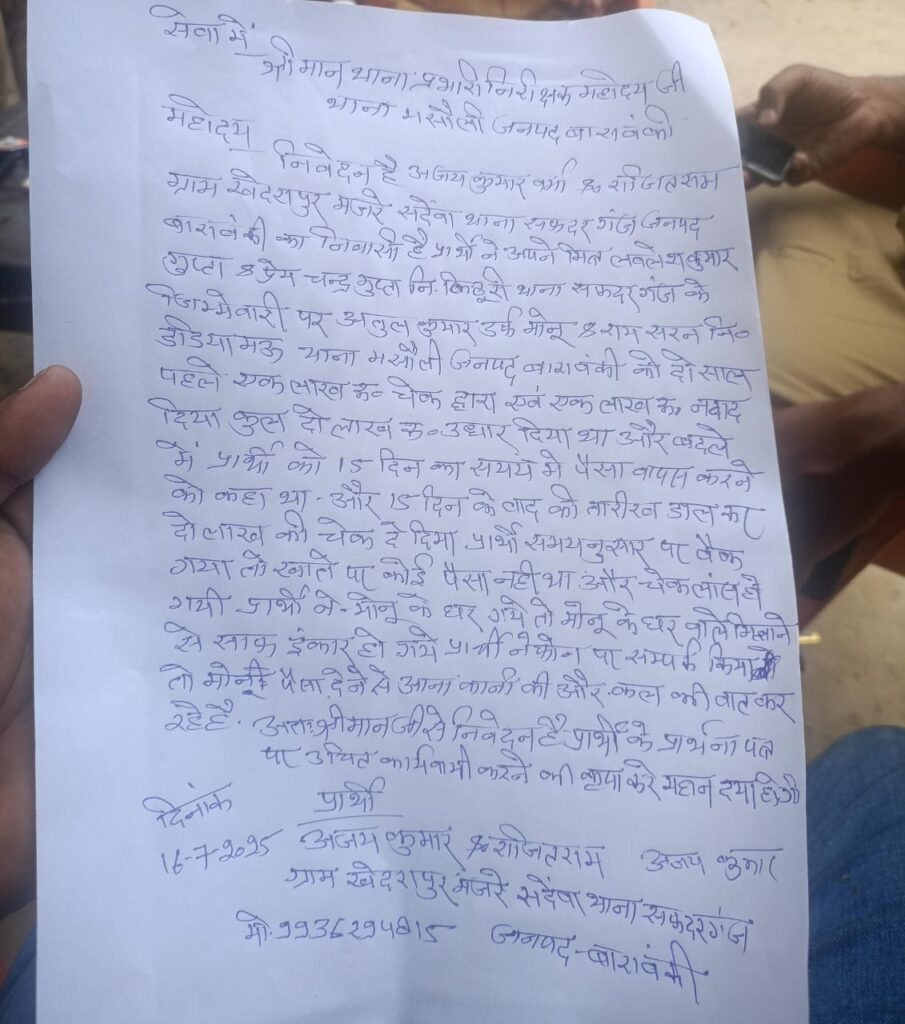 सेवा में
श्रीमान थाना प्रभारी निरीक्षक महोदय जी
थाना मसौली जनपद बाराबंकी
महोदय
निवेदन है अजय कुमार वर्मा S/o राजितराम
ग्राम खेदरापुर मजरे सदेवा थाना सफदरगंज जनपद
बाराबंकी का निवासी है प्रार्थी ने अपने मित्र लवलेश कुमार
गुप्ता S/o प्रेम चन्द्र गुप्ता नि. थाना सफदरगंज के
जिम्मेवारी पर अतुल कुमार उर्फ मोनू S/o राम सरन नि०
डडियामऊ थाना मसौली जनपद बाराबंकी को दो साल
पहले एक लाख रू० चेक द्वारा एवं एक लाख रू० नगद
दिया कुल दो लाख रू० उधार दिया था और बदले
में प्रार्थी को 15 दिन का समय में पैसा वापस करने
को कहा था - और 15 दिन के बाद की तारीख डाल कर
दो लाख की चेक दे दिया प्रार्थी समयनुसार पर बैंक
गया तो खाते पर कोई पैसा नही था और चेक हो
गयी प्रार्थी ने - मोनू के घर गये तो मोनू के घर वाले
से साफ इंकार हो गये प्रार्थी ने फोन पर सम्पर्क किया
तो मोनू पैसा देने से आना कानी की और कल की बात कर
रहे है. अतः श्रीमान जी से निवेदन है प्रार्थी के प्रार्थना पत्र
पर उचित करने की कृपा करे महान दया होगी
दिनांक प्रार्थी
16-7-2025 अजय कुमार S/o राजितराम अजय कुमार
ग्राम खेदरापुर मजरे सदेवा थाना सफदरगंज
मो. 9936294815 जनपद - बाराबंकी